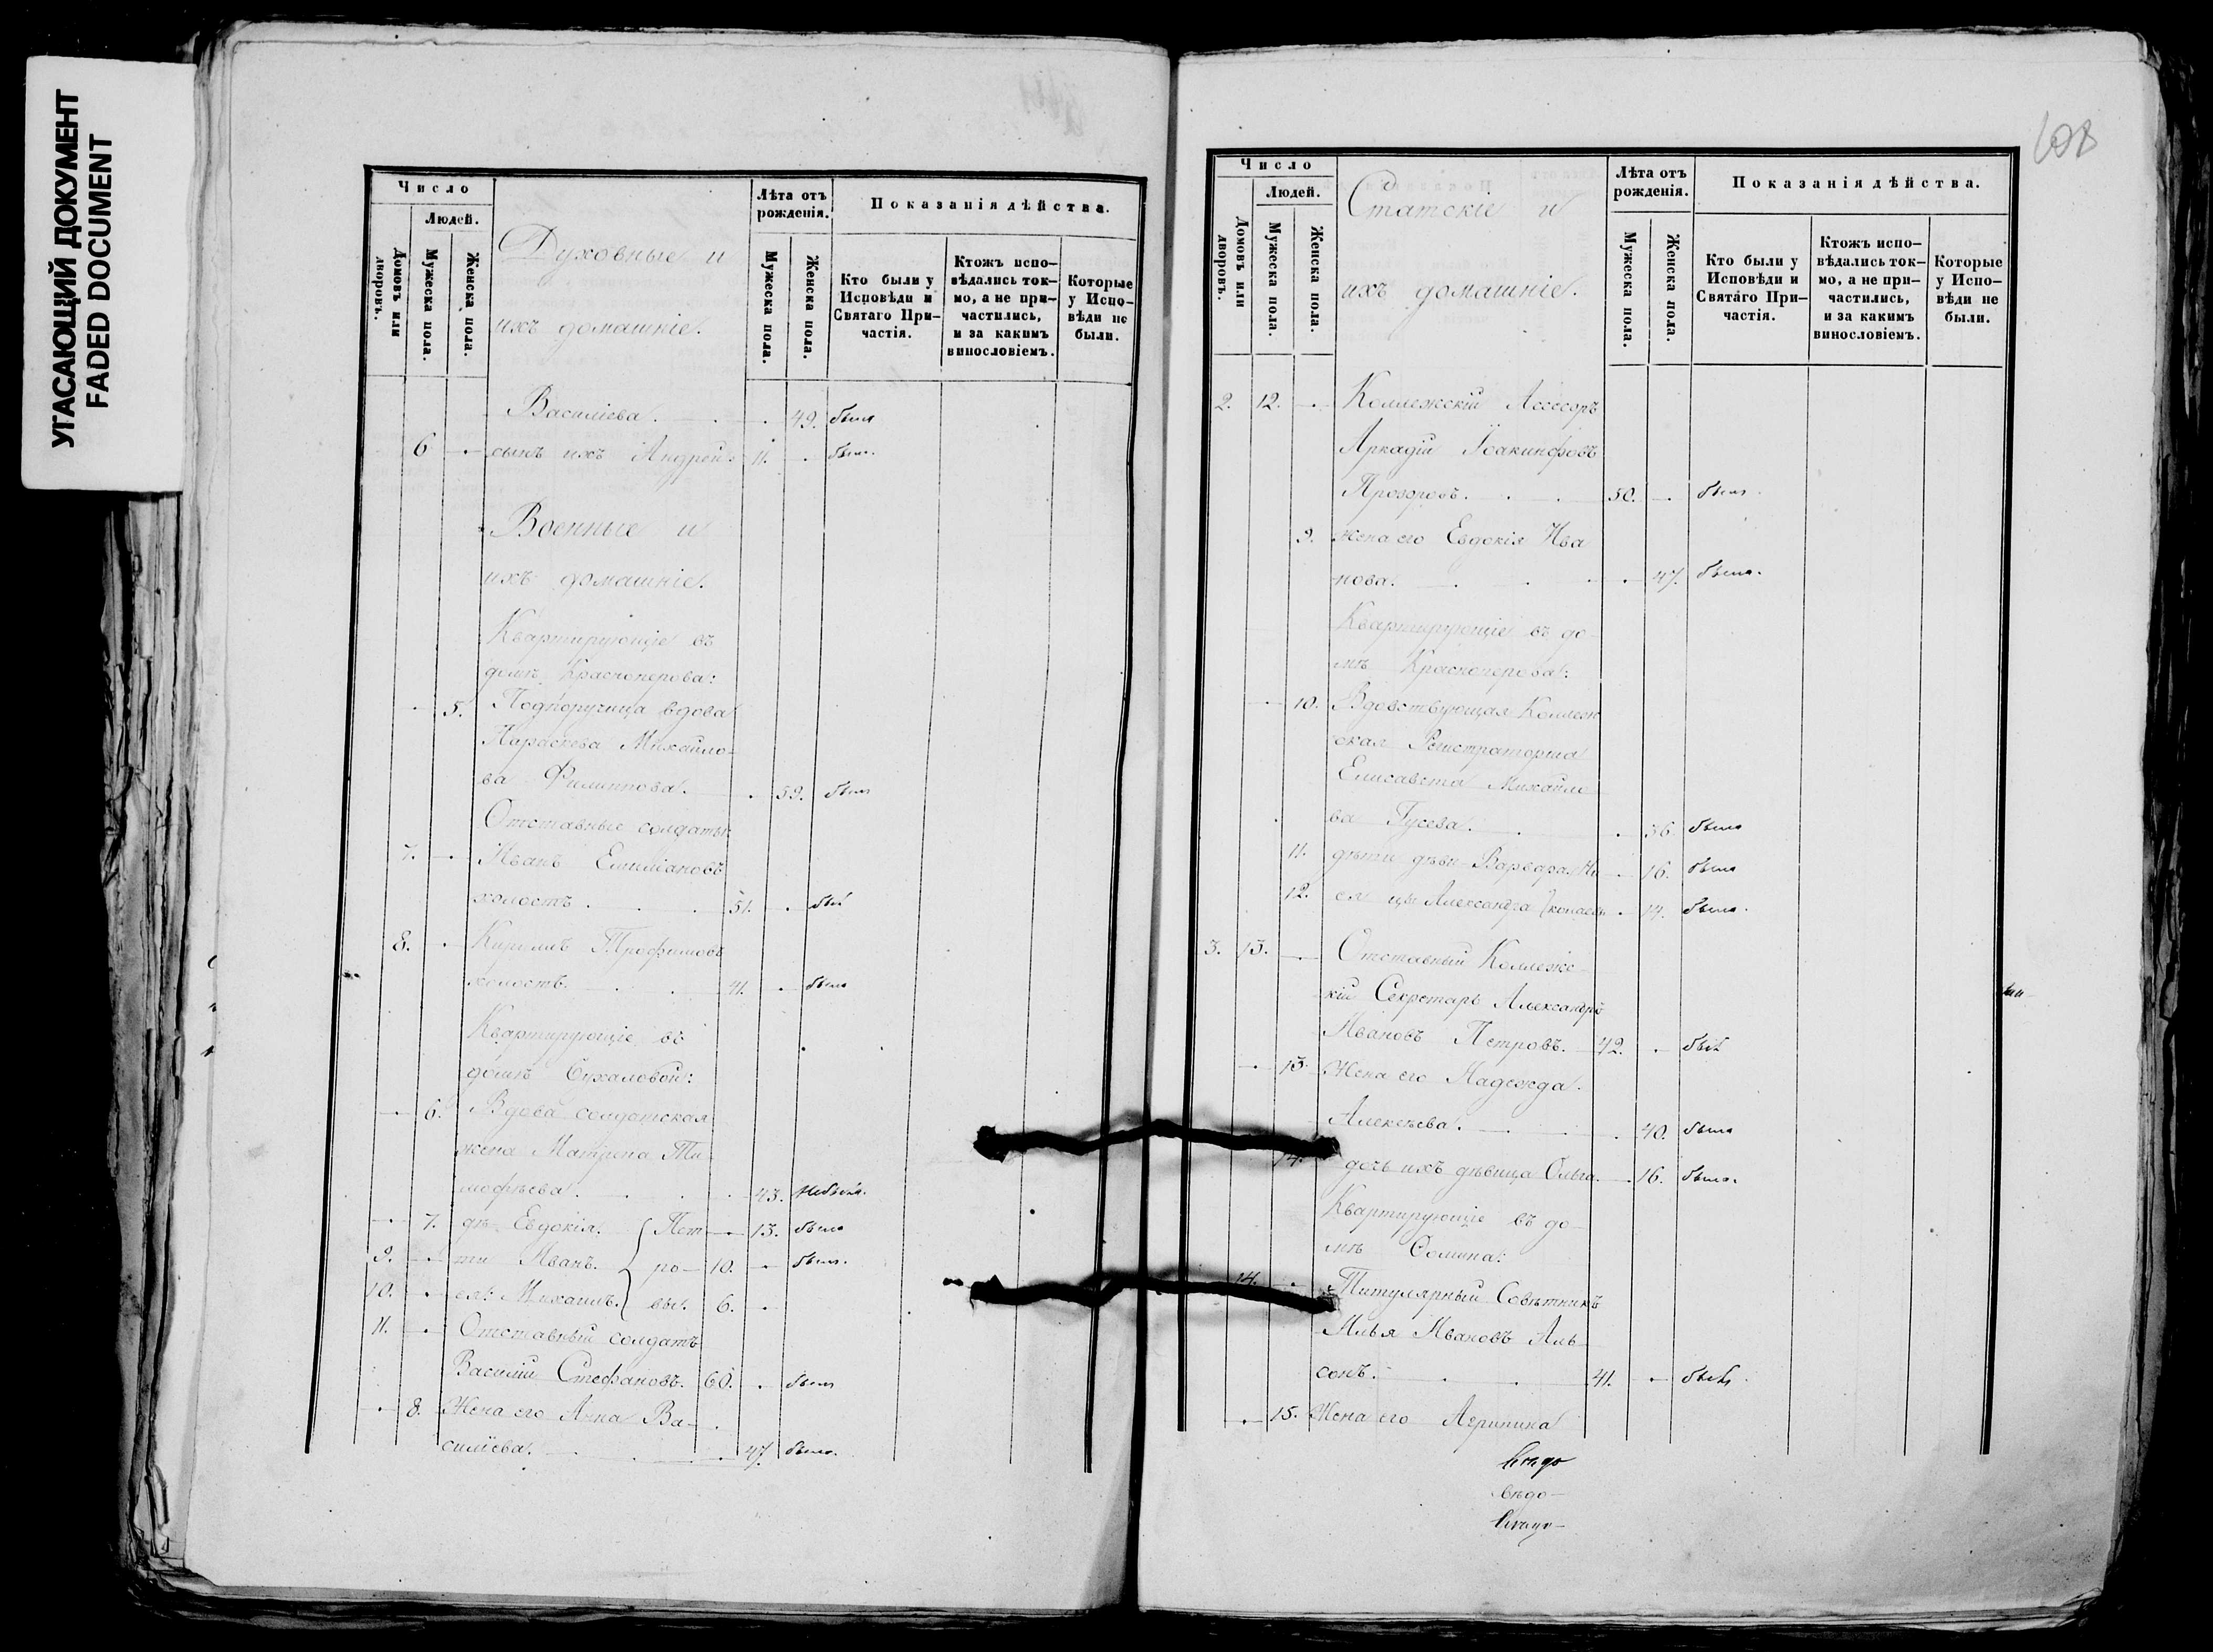 УГАСАЮЩИЙ ДОКУМЕНТ
FADED DOCUMENT
Число
Людей.
Домовъ или дворовъ.
Мужеска пола.
Женска пола.
Духовные и
ихъ домашніе.
Лѣта отъ рожденія.
Мужеска пола.
Женска пола.
Показанія дѣйства.
Кто были у Исповѣди и Святаго Причастія.
Ктожъ исповѣдались токмо, а не причастились, и за какимъ винословіемъ.
Которые у Исповѣди не были.
Василіева . . . 49. была
6 — сынъ ихъ Андрей 11. . былъ.
Военные и
ихъ домашніе.
Квартирующіе въ
домѣ Красноперова:
— 5. Подпоручица вдова
Параскева Михайло-
ва Филиппова. . 59. была
Отставные солдаты:
7. — Иванъ Емиліановъ
холостъ . . . 51. . былъ
8. — Кириллъ Трофимовъ
холостъ. . . 41. . былъ
Квартирующіе въ
домѣ Сухаловой:
— 6. Вдова солдатская
жена Матрена Ти-
мофѣева . . . 43. Небыла.
— 7. дѣ- Евдокія. { Пет — 13. была
9. — ти Иванъ. { ро — 10. — былъ.
10. — ея: Михаилъ. } вы. 6. —
11. — Отставный солдатъ
Василій Стефановъ. 60. . былъ
— 8. Жена его Анна Ва-
силіева. . . . 47. была.
608
Число
Людей.
Домовъ или дворовъ.
Мужеска пола.
Женска пола.
Статскіе и
ихъ домашніе.
Лѣта отъ рожденія.
Мужеска пола.
Женска пола.
Показанія дѣйства.
Кто были у Исповѣди и Святаго Причастія.
Ктожъ исповѣдались токмо, а не причастились, и за какимъ винословіемъ.
Которые у Исповѣди не были.
2. 12. — Коллежскій Ассесоръ
Аркадій Іоакинфовъ
Прозоровъ. . . 50. — былъ.
9. жена его Евдокія Ива
нова. . . . — 47. была.
Квартирующіе въ до-
мѣ Красноперова:
— 10. Вдовствующая Коллеж
ская Регистраторша
Елисавета Михайло
ва Гусева. . . 36. была
11. дѣти дѣви- Варвара Ни — 16. была
12. ея цы Александра } колаевы . 14. была.
3. 13. — Отставный Коллежс-
кій Секретарь Александръ
Ивановъ Петровъ. 42. — былъ
— 13. Жена его Надежда
Алексѣева. . . . 40. была
14. дочь ихъ дѣвица Ольга. — 16. была.
Квартирующіе въ до-
мѣ Сомина:
14. — Титулярный Совѣтникъ
Илья Ивановъ Аль
сонъ. . . 41. — былъ.
— 15. Жена его Агрипина
вѣдо-